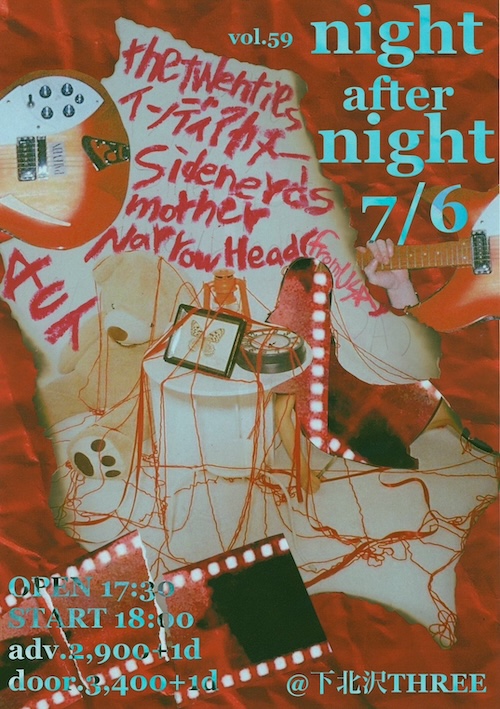 vol.59
night
after
night
7/6
thetwenties
インディアカヌー
Sidenerds
mother
Narrow Head(from USA)
OPEN 17:30
START 18:00
adv.2,900+1d
door.3,400+1d
@下北沢THREE